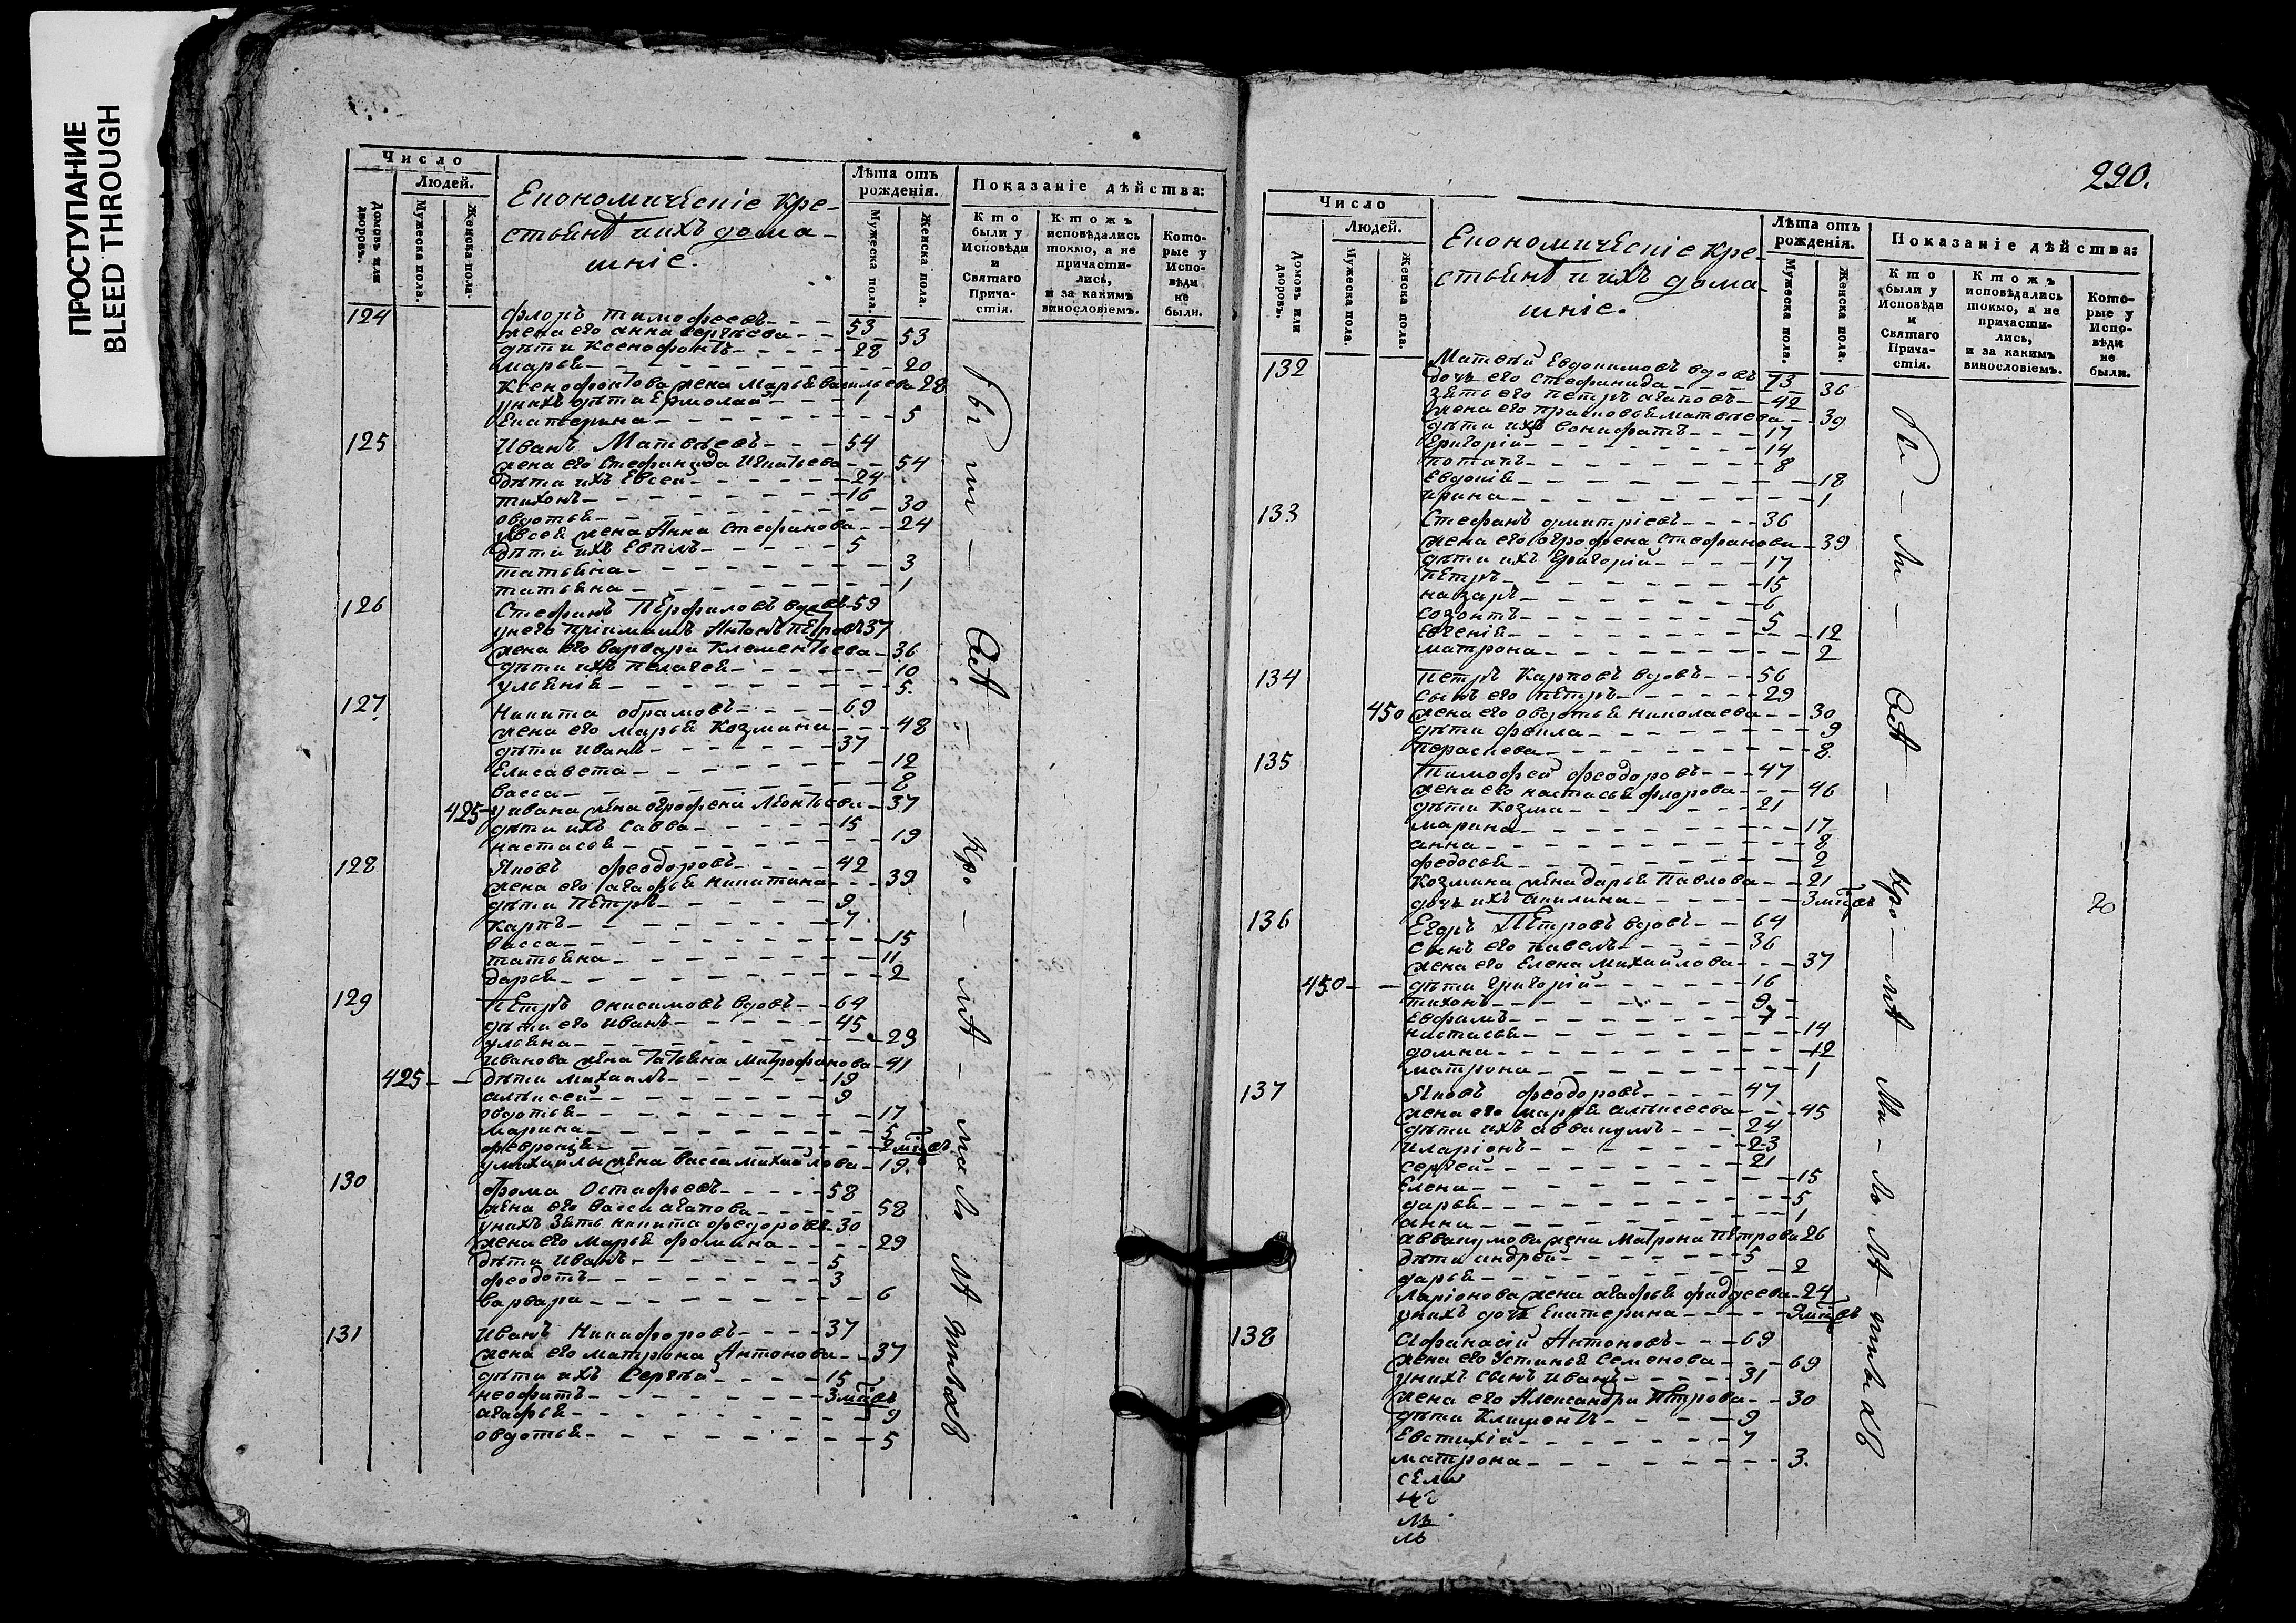 ПРОСТУПАНИЕ
BLEED THROUGH
Число
Людей.
Домовъ или дворовъ.
Мужеска пола.
Женска пола.
Економическіе кре-
стьянѣ и ихъ дома-
шніе.
Лѣта отъ
рожденія.
Мужеска пола.
Женска пола.
Показаніе дѣйства:
Кто
были у
Исповѣди
и
Святаго
Прича-
стія.
Ктожъ
исповѣдались
токмо, а не
причасти-
лись,
и за какимъ
винословіемъ.
Кото-
рые у
Испо-
вѣди
не
были.
124 Флоръ Тимофеевъ 53
жена его Анна Сергѣева 53
дѣти Ксенофонтъ 28
Марья 20
Ксенофонтова жена Марья Васильева 28
у нихъ дѣти Ермолай 1
Екатерина 5
125 Иванъ Матвѣевъ 54
жена его Стефанида Игнатьева 54
дѣти ихъ Евсей 24
Тихонъ 16
Овдотья 30
жена Анна Стефанова 24
дѣти ихъ 5
Татьяна 3
Татьяна 1
126 Стефанъ Перфиловъ вдовъ 59
у него пріимышъ Антонъ Петровъ 37
жена его Варвара Клементьева 36
дѣти ихъ Пелагея 10
Ульянія 5.
127 Никита Обрамовъ 69
жена его Марья Козмина 48
дѣти Иванъ 37
Елисавета 12
Васса 8
425 у Ивана жена Огрофена Леонтьева 37
дѣти ихъ Савва 15
Настасья 19
128 Яковъ Феодоровъ 42
жена его Агафья Никитина 39
дѣти Петръ 9
Карпъ 7
Васса 15
Татьяна 11
Дарья 2
129 Петръ Онисимовъ вдовъ 64
дѣти его Иванъ 45
Ульяна 29
Иванова жена Татьяна Митрофанова 41
425 дѣти Михаилъ 19
Алѣксей 9
Овдотья 17
Марина 5
Февронія 2 мцовъ
у Михаилы жена Васса Михайлова 19.
130 Фома Остафьевъ 58
жена его Васса Агапова 58
у нихъ зять Никита Федоровъ 30
жена его Марья Фомина 29
дѣти Иванъ 5
Феодотъ 3
Варвара 6
131 Иванъ Никифоровъ 37
жена его Матрона Антонова 37
дѣти ихъ Сергѣй 15
Неофитъ 3 мцовъ
Агафья 9
Овдотья 5
220.
Число
Людей.
Домовъ или дворовъ.
Мужеска пола.
Женска пола.
Економическіе кре-
стьянѣ и ихъ дома-
шніе.
Лѣта отъ
рожденія.
Мужеска пола.
Женска пола.
Показаніе дѣйства:
Кто
были у
Исповѣди
и
Святаго
Прича-
стія.
Ктожъ
исповѣдались
токмо, а не
причасти-
лись,
и за какимъ
винословіемъ.
Кото-
рые у
Испо-
вѣди
не
были.
132 Матвѣй Евдокимовъ вдовъ 73
дочь его Стефанида 36
зять его Петръ Агаповъ 42
жена его Прасковья Матвѣева 39
дѣти ихъ Вонифатъ 17
Григорій 14
Потапъ 8
Евдокія 18
Ирина 1
133 Стефанъ Дмитріевъ 36
жена его Огрофена Стефанова 39
дѣти ихъ Григорій 17
Петръ 15
Назаръ 6
Созонтъ 5
Евгенія 12
Матрона 2
134 Петръ Карповъ вдовъ 56
сынъ его Петръ 29
450 жена его Овдотья Николаева 30
дѣти Фекла 9
Пораскева 8.
135 Тимофей Феодоровъ 47
жена его Настасья Флорова 46
дѣти Козма 21
Марина 17
Анна 8
Федосья 2
Козмина жена Дарья Павлова 21
дочь ихъ Акилина 3 мцовъ
20
136 Егоръ Петровъ вдовъ 64
сынъ его Павелъ 36
жена его Елена Михайлова 37
450 дѣти Григорій 16
Тихонъ 9
Ефримъ 7
Настасья 14
Домна 12
Матрона 1
137 Яковъ Феодоровъ 47
жена его Марья Алѣксеева 45
дѣти ихъ Аввакумъ 24
Иларіонъ 23
Сергей 21
Елена 15
Дарья 5
Анна 1
Аввакумова жена Матрона Петрова 26
дѣти Андрей 5
Дарья 2
Ларіонова жена Агафья Фаддеева 24
у нихъ дочь Екатерина 9 мцовъ
138 Афанасій Антоновъ 69
жена его Устинья Семенова 69
у нихъ сынъ Иванъ 31
жена его Александра Петрова 30
дѣти Климентъ 9
Евстихій 7
Матрона 3.